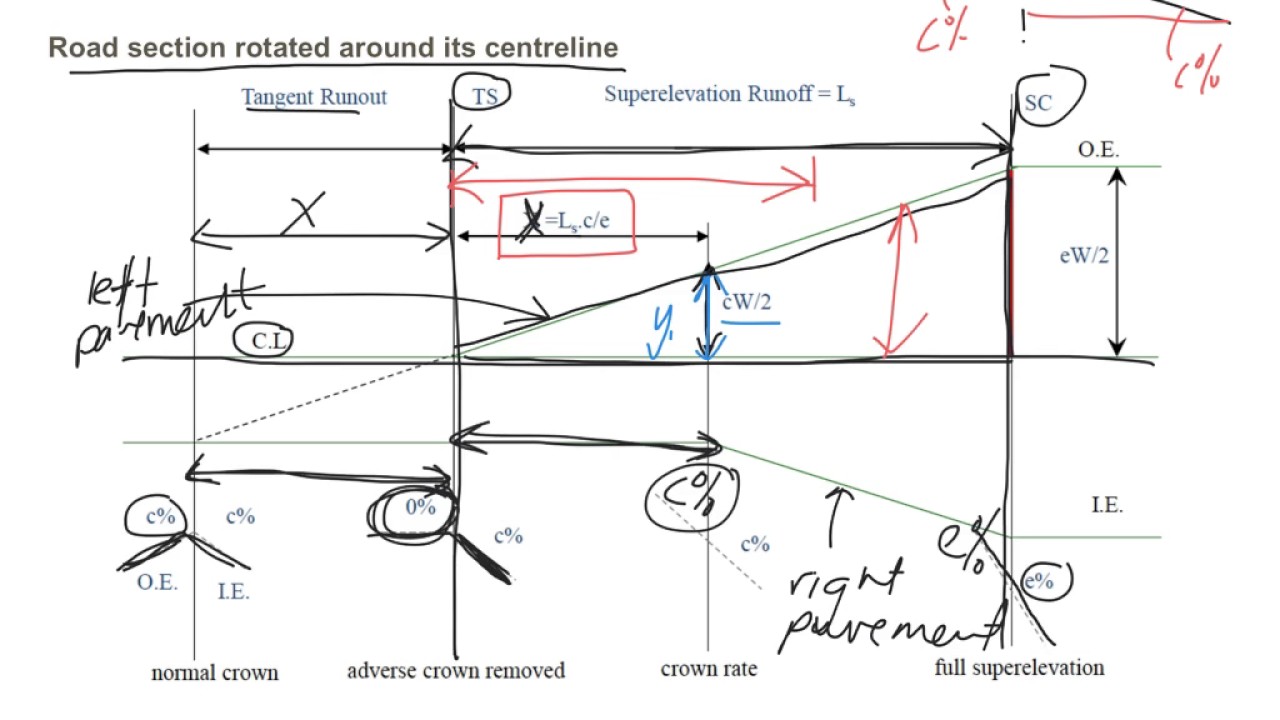 c%
c%
Road section rotated around its centreline
Tangent Runout
TS
Superelevation Runoff = Ls
SC
O.E.
X
X=Ls.c/e
eW/2
left
pavement
cW/2
y,
C.L
c%
I.E.
c%
c%
0%
c%
c%
e%
e%
O.E.
I.E.
right
pavement
normal crown
adverse crown removed
crown rate
full superelevation